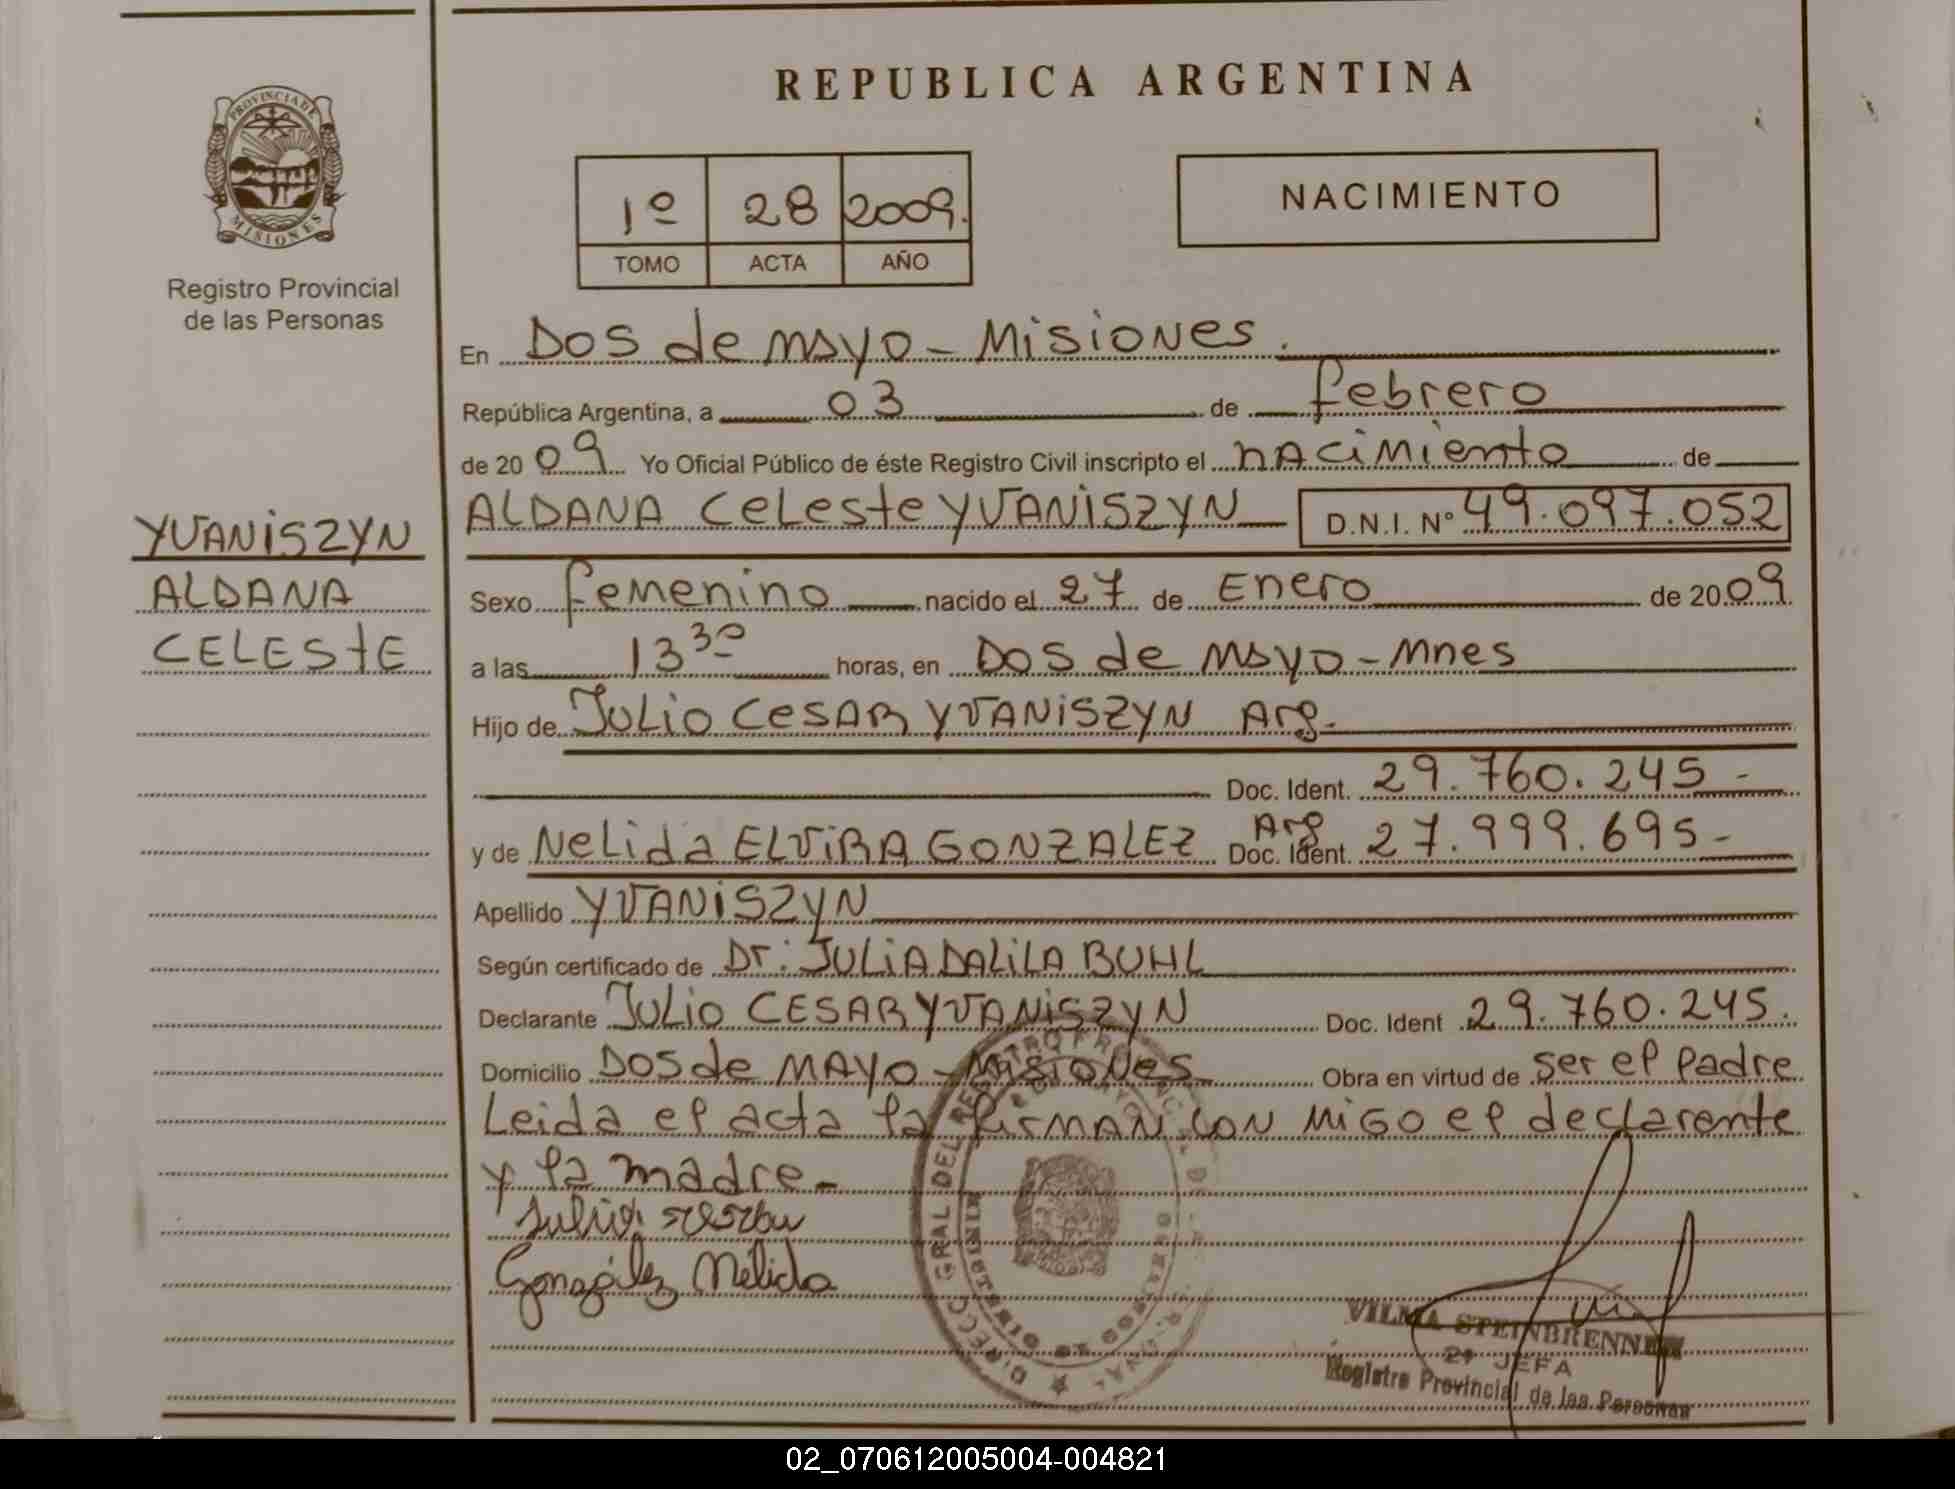 REPUBLICA ARGENTINA
PROVINCIA DE
MISIONES
Registro Provincial
de las Personas
1º 28 2009.
TOMO ACTA AÑO
NACIMIENTO
En Dos de mayo - Misiones.
República Argentina, a 03 de febrero
de 20 09 Yo Oficial Público de éste Registro Civil inscripto el nacimiento de
YVANISZYN
ALDANA
CELESTE
ALDANA Celeste YVANISZYN D.N.I. Nº 49.097.052
Sexo femenino nacido el 27 de Enero de 2009
a las 13 30 horas, en Dos de mayo - Mnes
Hijo de Julio Cesar YVANISZYN Arg.
Doc. Ident. 29.760.245 -
y de Nelida ELVIRA GONZALEZ Arg Doc. Ident. 27.999.695 -
Apellido YVANISZYN
Según certificado de Dr: JULIA DALILA BUHL
Declarante Julio CESAR YVANISZYN Doc. Ident 29.760.245.
Domicilio Dos de MAYO - Misiones Obra en virtud de ser el padre
Leida el acta la firman con migo el declarante
y la madre -
González Nélida
VILMA STEINBRENNER
2º JEFA
Registro Provincial de las Personas
02_070612005004-004821